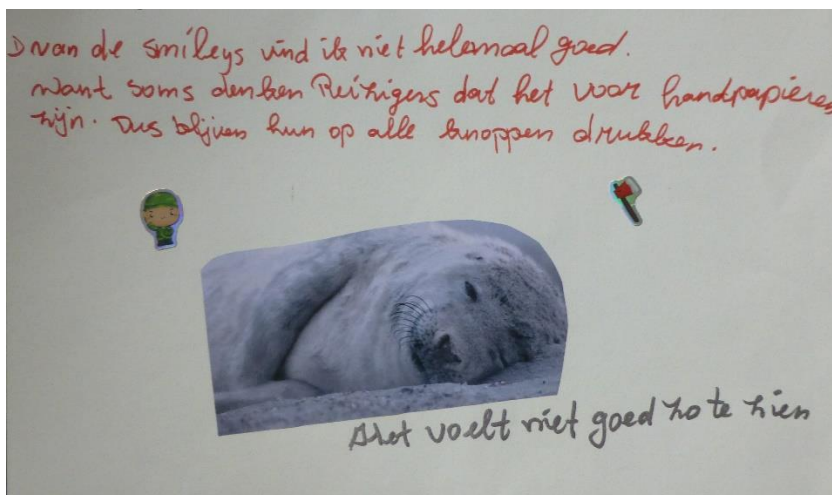 D van de smileys vind ik niet helemaal goed.
Want soms denken Reizigers dat het voor handpapieren
zijn. Dus blijven hun op alle knoppen drukken.
Het voelt niet goed zo te zien